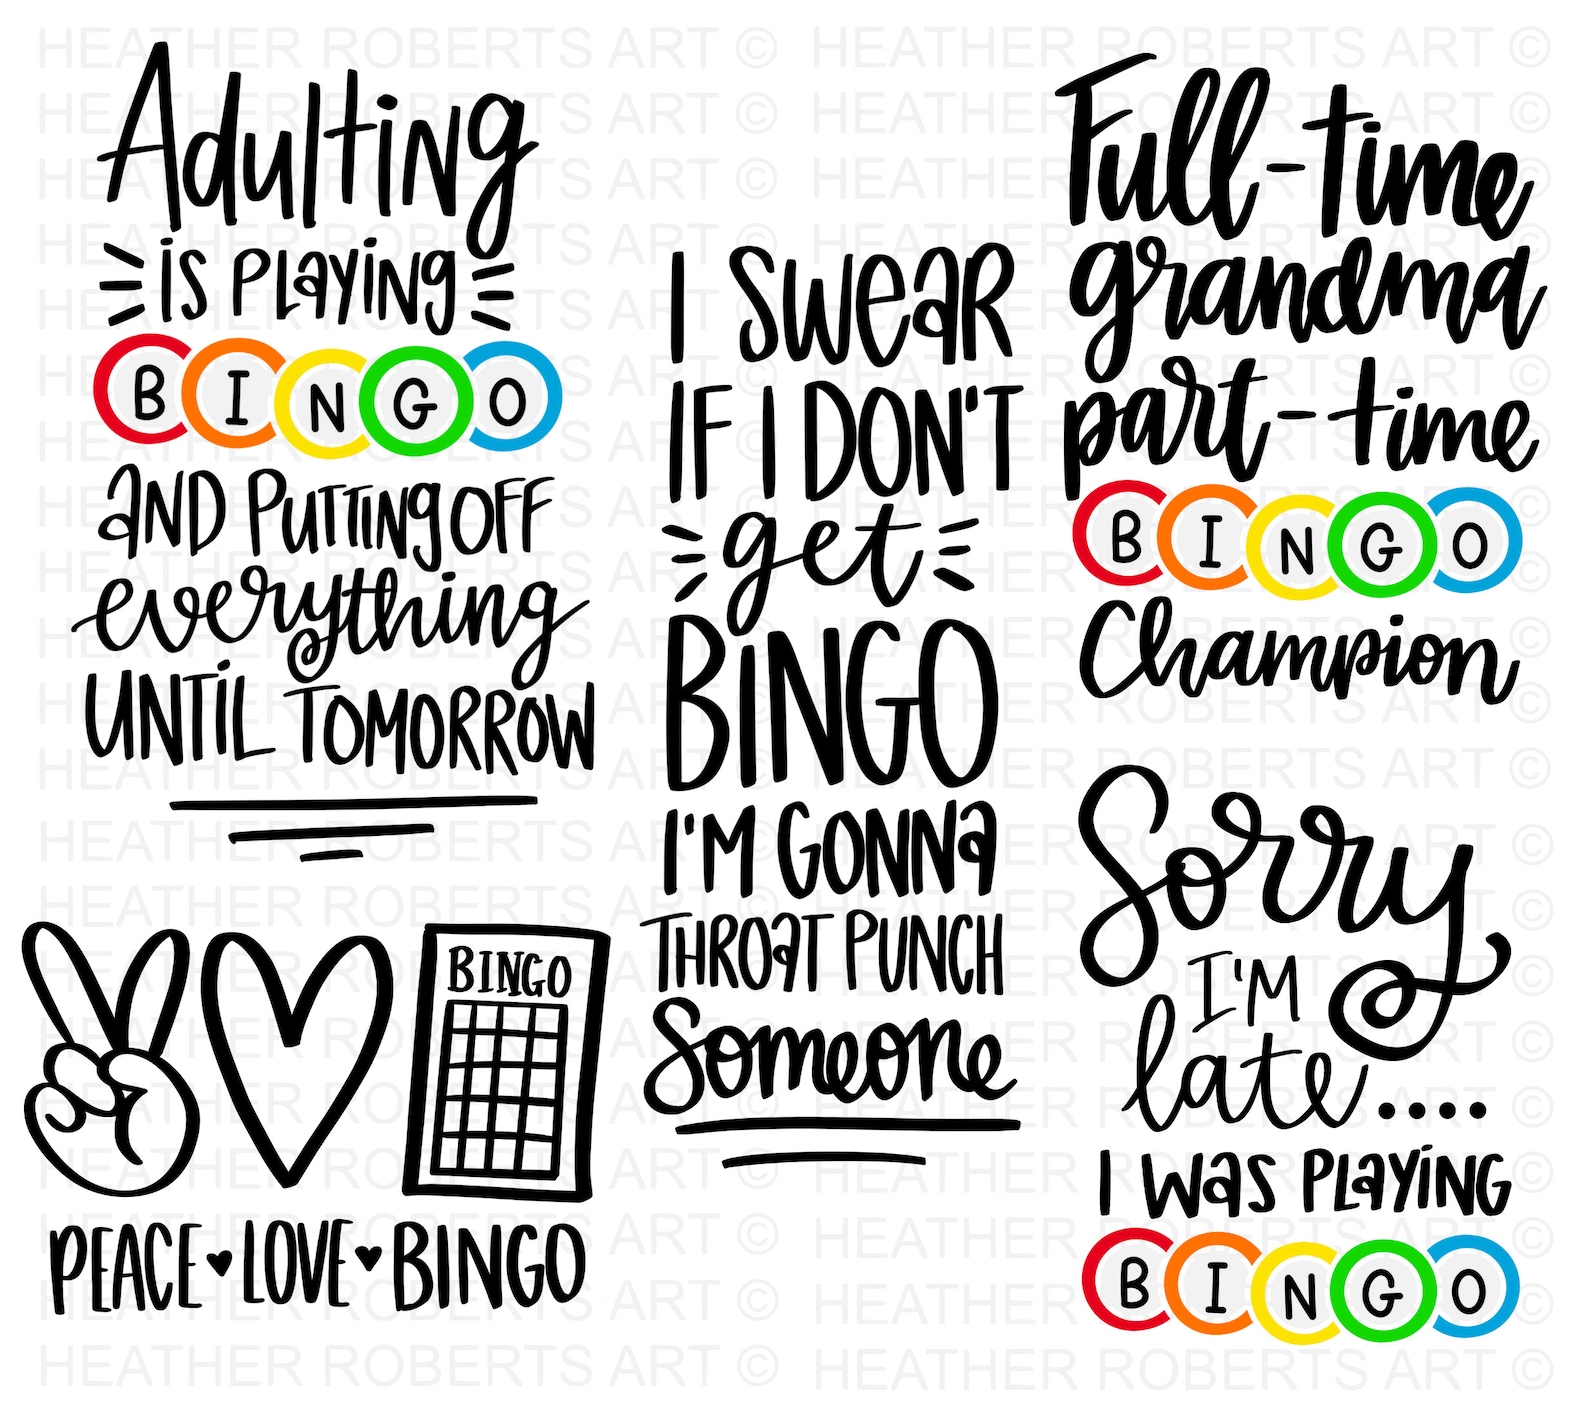 Adulting
is PLAYING
BINGO
AND PUTTING OFF
everything
UNTIL TOMORROW
I SWEAR
IF I DON'T
get
BINGO
I'M GONNA
THROAT PUNCH
Someone
Full-time
grandma
part-time
BINGO
Champion
Sorry
I'M
late....
I WAS PLAYING
BINGO
BINGO
PEACE ♥ LOVE ♥ BINGO
HEATHER ROBERTS ART ©